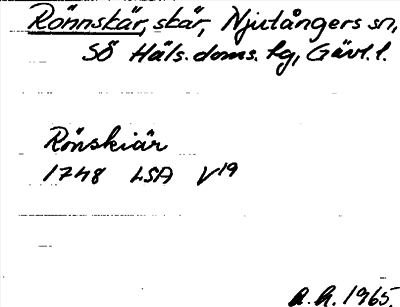 Rönnskär, skär, Njutångers sn,
SÖ Häls. doms. hg, Gävl. l.
Rönskiär
1748 LSA V19
A.H. 1965.